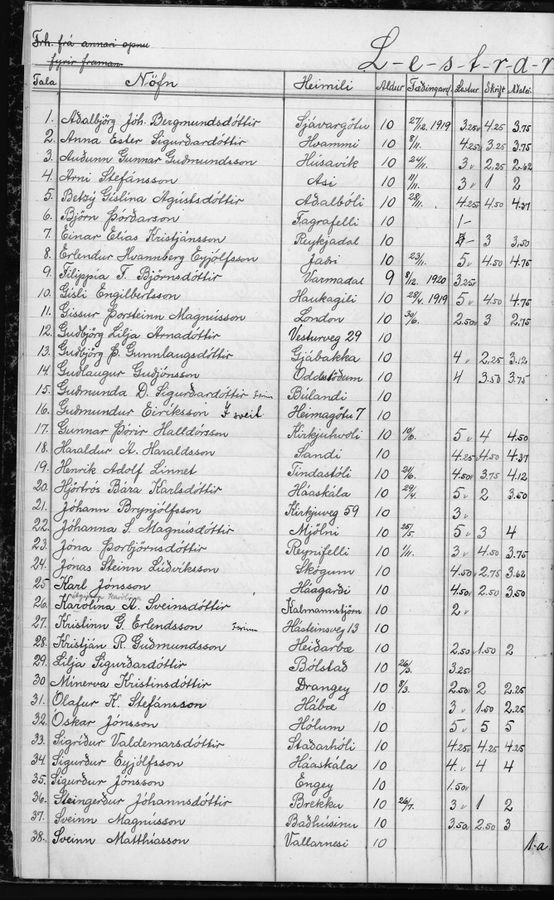 Frh. frá annari opnu
fyrir framan.
L-e-s-t-r-a-r
Tala Nöfn Heimili Aldur Fæðingard. Lestur Skrift Málsl.
1. Aðalbjörg Jóh. Bergmundsdóttir Sjávargötu 10 27/12. 1919 3.25v 4.25 3.75
2. Anna Ester Sigurðardóttir Hvammi 10 4.25 3.25 3.75
3. Auðunn Gunnar Guðmundsson Húsavík 10 24/11. 3v 2.25 2.62
4. Arni Stefánsson Asi 10 3v 1 2
5. Betsý Gíslina Agústsdóttir Aðalbóli 10 28/11. 4.25 4.50 4.37
6. Björn Þórðarson Fagrafelli 10 1-
7. Einar Elías Kristjánsson Reykjadal 10 3 3.50
8. Erlendur Hvannberg Eyjólfsson Jaðri 10 23/11. 5v 4.50 4.75
9. Filippia T. Björnsdóttir Varmadal 9 8/12. 1920 3.25v
10. Gísli Engilbertsson Haukagili 10 1919 5v 4.50 4.75
11. Gissur Þorsteinn Magnússon London 10 30/6. 2.50v 3 2.75
12. Guðbjörg Lilja Arnadóttir Vesturveg 29 10
13. Guðbjörg Þ. Gunnlaugsdóttir Gjábakka 10 4v 2.25 3.12
14. Guðlaugur Guðjónsson Oddstöðum 10 4 3.50 3.75
15. Guðmunda D. Sigurðardóttir Búlandi 10
16. Guðmundur Eiríksson Í sveit Heimagötu 7 10
17. Gunnar Þórir Halldórsson Kirkjuhvoli 10 10/10. 5v 4 4.50
18. Haraldur A. Haraldsson Sandi 10 4.25 4.50 4.37
19. Henrik Adolf Linnet Tindastóli 10 21/6. 4.50v 3.75 4.12
20. Hjörtrós Bára Karlsdóttir Háaskála 10 29/4. 5v 2 3.50
21. Jóhann Brynjólfsson Kirkjuveg 59 10 3v
22. Jóhanna S. Magnúsdóttir Mjölni 10 25/5. 5v 3 4
23. Jóna Þorbjörnsdóttir Reynifelli 10 1/11. 3v 4.50 3.75
24. Jónas Steinn Lúðvíksson Skógum 10 4.50v 2.75 3.62
25 Karl Jónsson Háagarði 10 4.50v 2.50 3.50
26. Karólína A. Sveinsdóttir Kalmannstjörn 10 2v
27. Kristinn G. Erlendsson Hásteinsveg 13 10
28. Kristján R. Guðmundsson Heiðarbæ 10 2.50 1.50 2
29. Lilja Sigurðardóttir Bólstað 10 26/3. 3.25v
30 Minerva Kristinsdóttir Drangey 10 8/3. 2.50v 2 2.25
31. Olafur K. Stefánsson Hábæ 10 3v 1.50 2.25
32. Oskar Jónsson Hólum 10 5v 5 5
33. Sigríður Valdemarsdóttir Staðarhóli 10 4.25v 4.25 4.25
34. Sigurður Eyjólfsson Háaskála 10 4.v 4 4
35. Sigurður Jónsson Engey 10 1.50v
36. Steingerður Jóhannsdóttir Brekku 10 26/7. 3v 1 2
37. Sveinn Magnússon Baðhúsinu 10 3.50v 2.50 3
38. Sveinn Matthíasson Vallarnesi 10
1.a